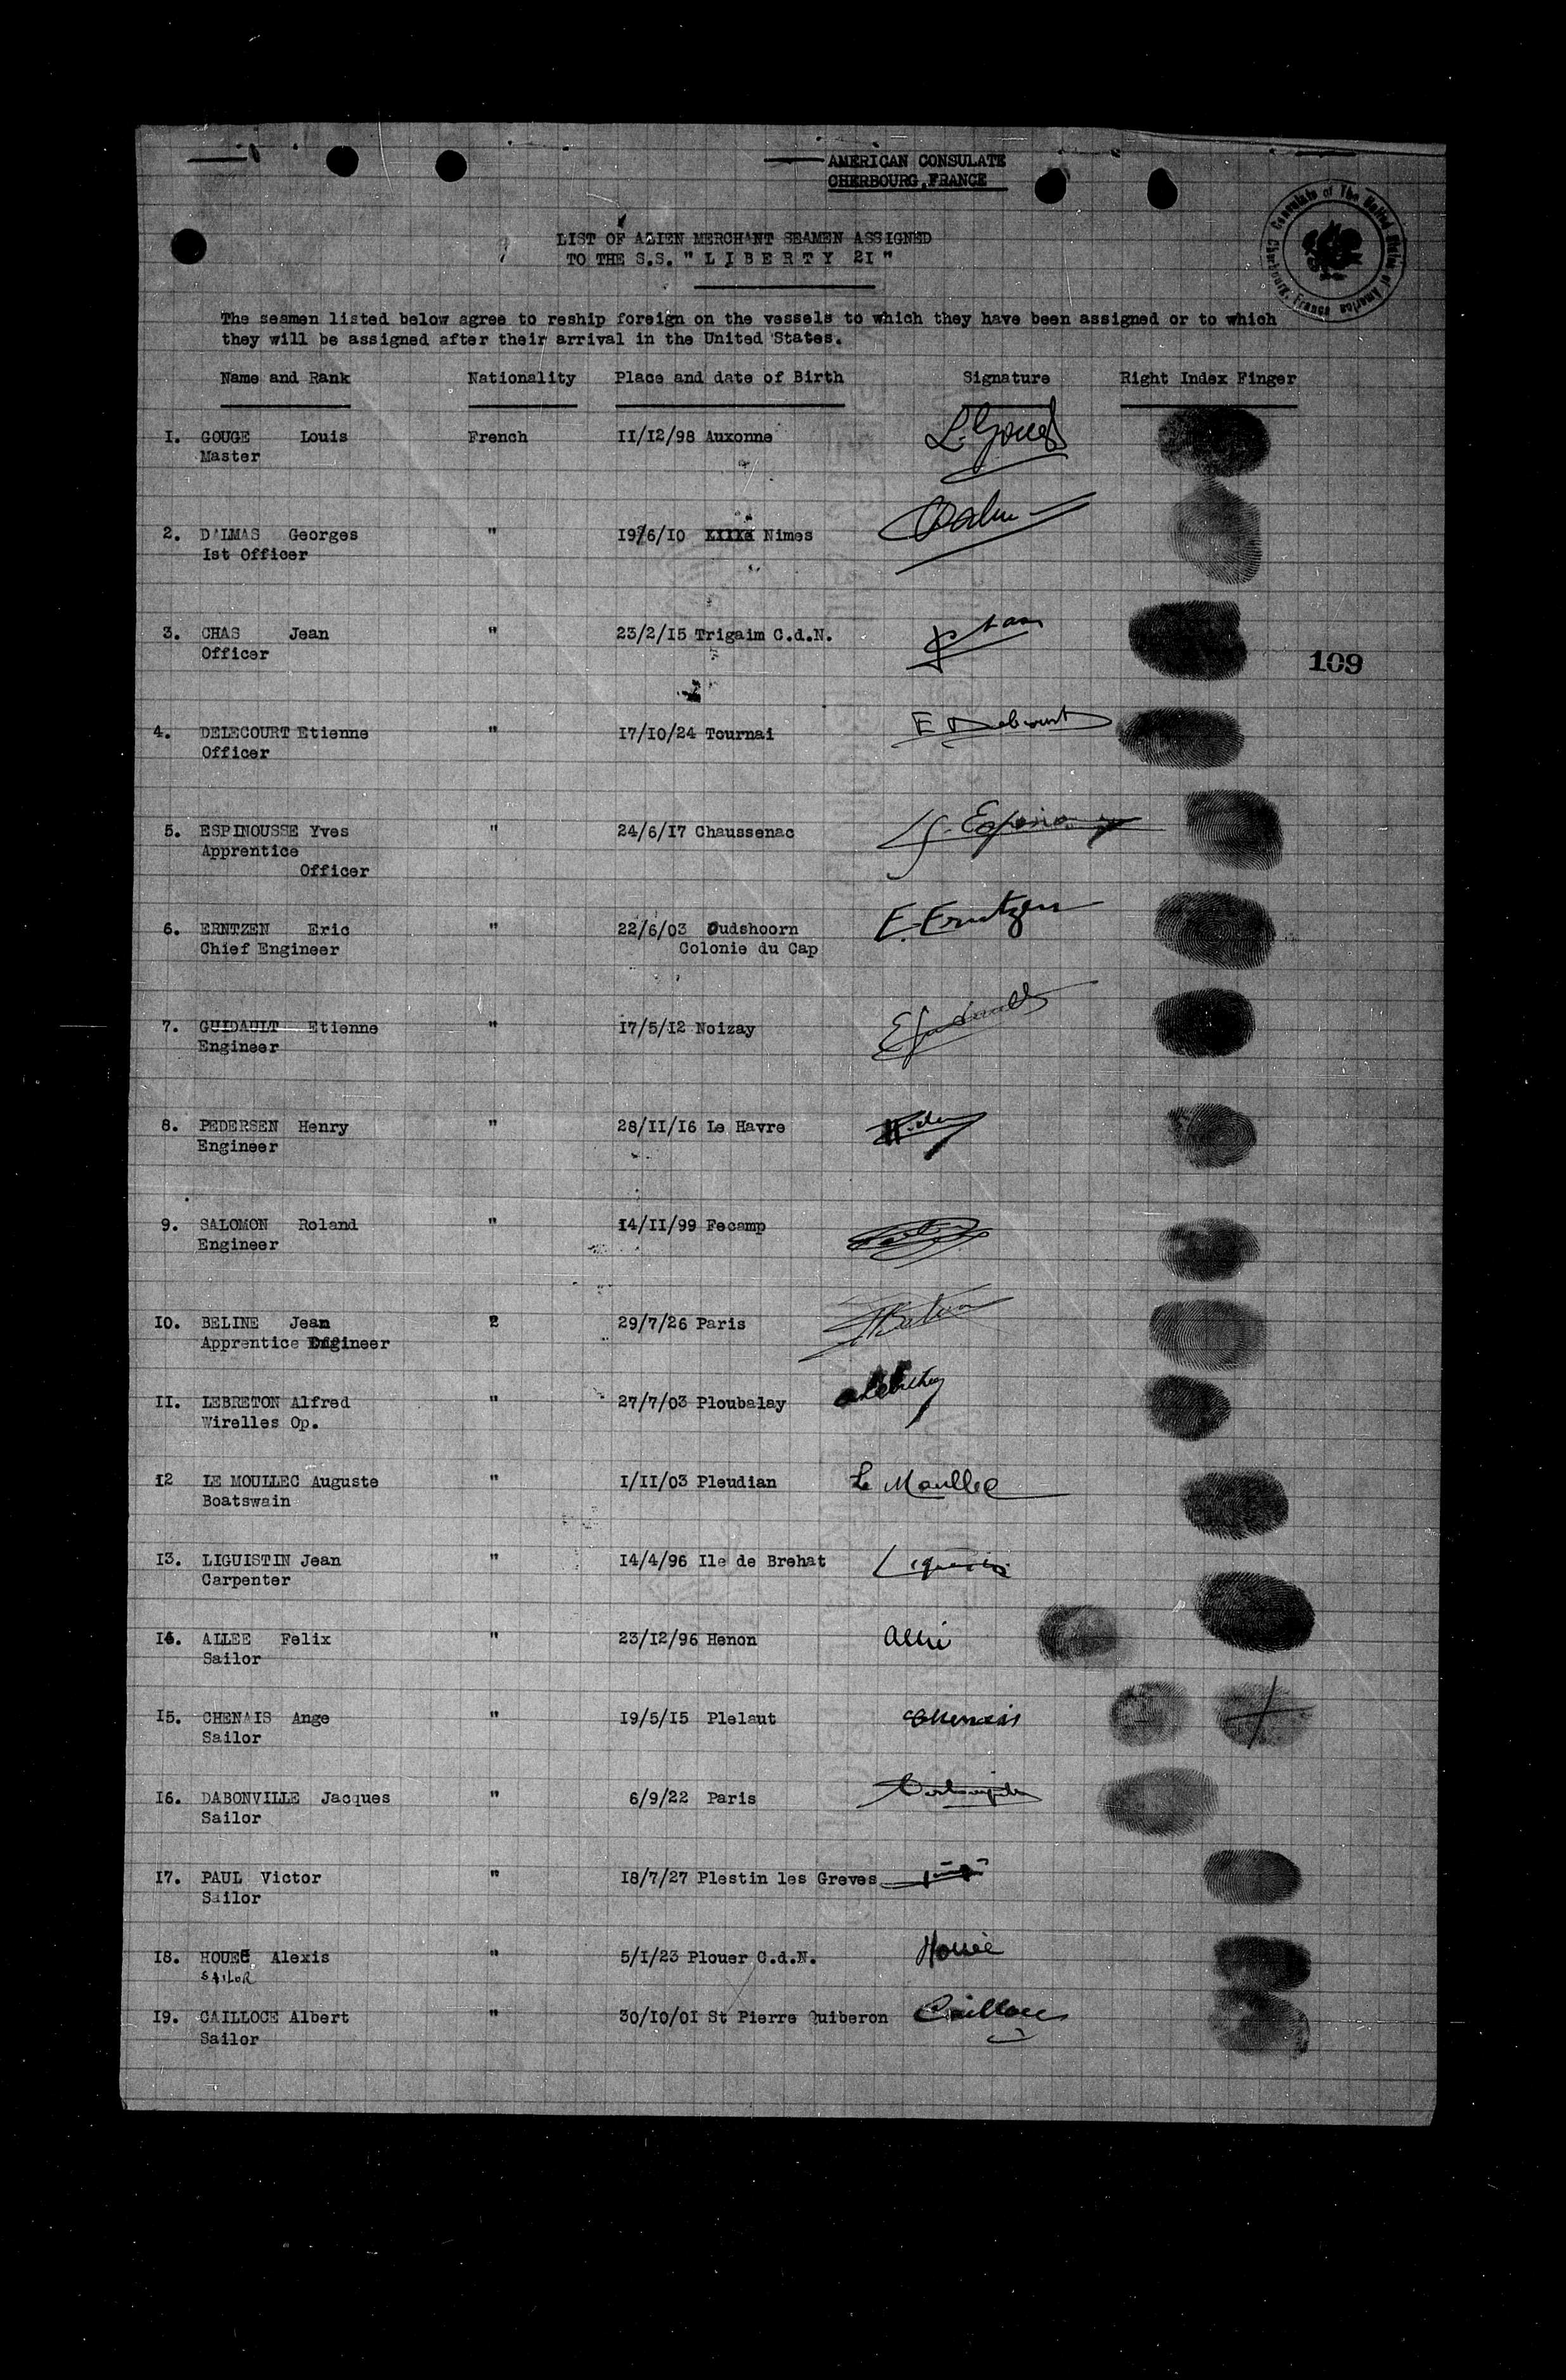 AMERICAN CONSULATE
CHERBOURG,FRANCE
Consulate of The United States of America
Cherbourg, France
LIST OF ALIEN MERCHANT SEAMEN ASSIGNED
TO THE S.S. " L I B E R T Y 2I "
The seamen listed below agree to reship foreign on the vessels to which they have been assigned or to which
they will be assigned after their arrival in the United States.
Name and Rank Nationality Place and date of Birth Signature Right Index Finger
I. GOUGE Louis French II/I2/98 Auxonne L. Gouge
Master
2. D'LMAS Georges " I9/6/I0 Nimes
Ist Officer
3. CHAS Jean " 23/2/I5 Trigaim C.d.N.
Officer
109
4. DELECOURT Etienne " I7/I0/24 Tournai E Delecourt
Officer
5. ESPINOUSSE Yves " 24/6/I7 Chaussenac
Apprentice
Officer
6. ERNTZEN Eric " 22/6/03 Oudshoorn E. Erntzen
Chief Engineer Colonie du Cap
7. GUIDAULT Etienne " I7/5/I2 Noizay E Guidault
Engineer
8. PEDERSEN Henry " 28/II/I6 Le Havre
Engineer
9. SALOMON Roland " I4/II/99 Fecamp
Engineer
I0. BELINE Jean 2 29/7/26 Paris
Apprentice Engineer
II. LEBRETON Alfred " 27/7/03 Ploubalay
Wirelles Op.
I2 LE MOULLEC Auguste " I/II/03 Pleudian Le Moullec
Boatswain
I3. LIGUISTIN Jean " I4/4/96 Ile de Brehat
Carpenter
I4. ALLEE Felix " 23/I2/96 Henon Allée
Sailor
I5. CHENAIS Ange " I9/5/I5 Plelaut Chenais
Sailor
I6. DABONVILLE Jacques " 6/9/22 Paris
Sailor
I7. PAUL Victor " I8/7/27 Plestin les Greves
Sailor
I8. HOUEE Alexis " 5/I/23 Plouer C.d.N. Houée
SAILOR
I9. CAILLOCE Albert " 30/I0/0I St Pierre Quiberon Cailloce
Sailor